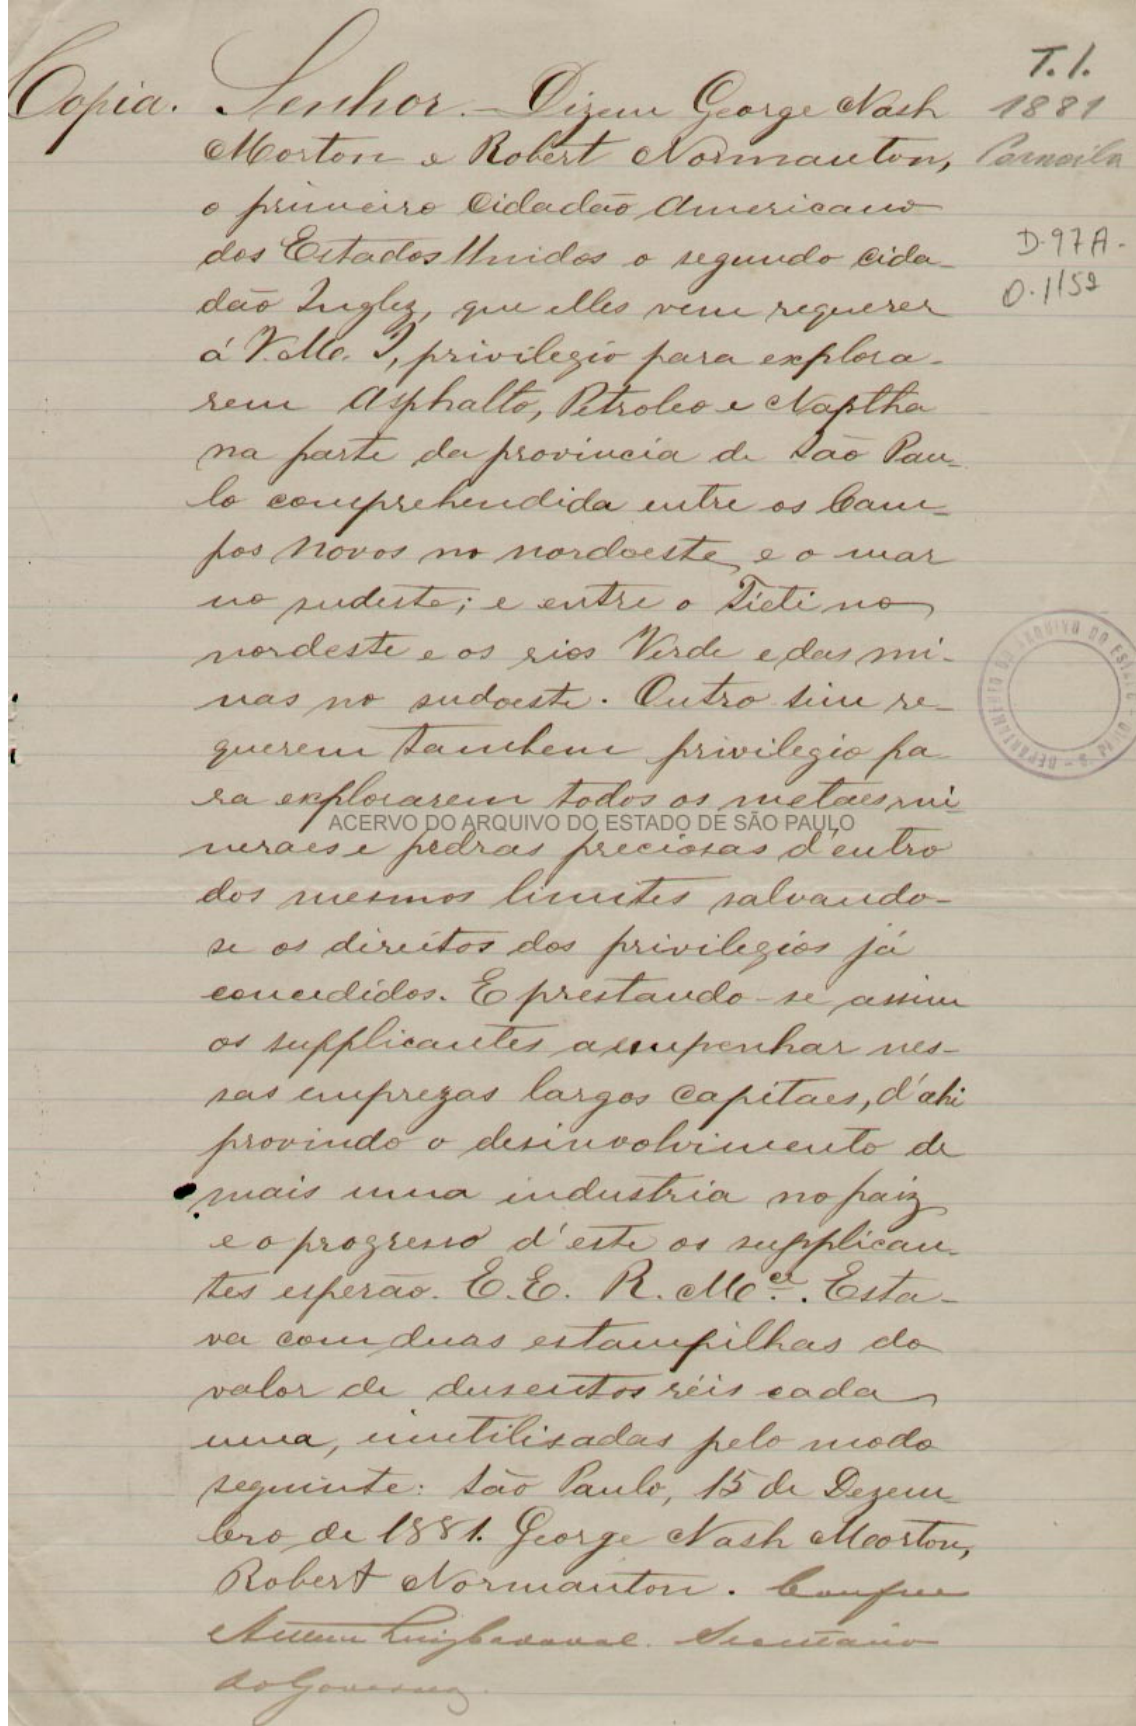 T. I.
Copia. Senhor. – Dizem George Nash
1881
Morton e Robert Normanton,
o primeiro Cidadão Americano
dos Estados Unidos o segundo Cida-
D-97A-
dão Inglez, que elles vem requerer
O. 1152
á V. Ma. I, privilegio para explora-
rem Asphalto, Petroleo e Naptha
na parte da provincia de São Pau-
lo comprehendida entre os Cam-
pos Novos no nordoeste, e o mar
no sudeste; e entre o Tieti no
nordeste e os rios Verde e das mi-
nas no sudoeste. Outro sim re-
querem tambem privilegio pa
ra explorarem todos os metaes, mi
ACERVO DO ARQUIVO DO ESTADO DE SÃO PAULO
neraes e pedras preciosas d'entro
dos mesmos limites salvando-
se os direitos dos privilegios já
concedidos. E prestando-se assim
os supplicantes a empenhar nes-
sas emprezas largos capitaes, d'ahi
provindo o desinvolvimento de
mais uma industria no paiz
e o progresso d'este os supplican-
tes esperão. E. E. R. Mce. Esta-
va com duas estampilhas do
valor de dusentos réis cada
uma, inutilisadas pelo modo
seguinte: São Paulo, 15 de Dezem-
bro de 1881. George Nash Morton,
Robert Normanton. Confere
Secretario
do Governo